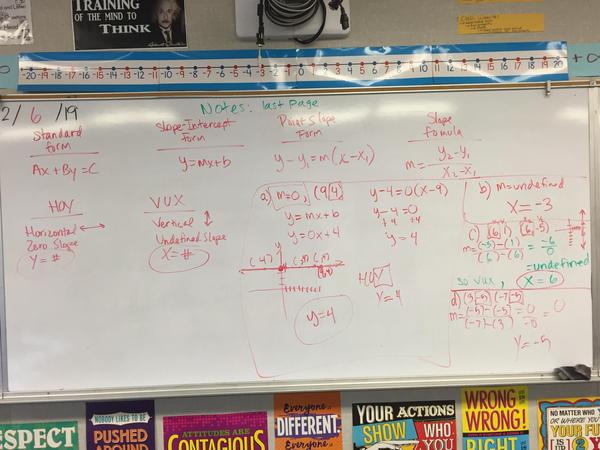 TRAINING
OF THE MIND TO
THINK
-20 -19 -18 -17 -16 -15 -14 -13 -12 -11 -10 -9 -8 -7 -6 -5 -4 -3 -2 -1 0 1 2 3 4 5 6 7 8 9 10 11 12 13 14 15 16 17 18 19 20
2/6/19
Notes: last page
Standard Form
Ax + By = C
Slope-Intercept Form
y = mx + b
Point Slope Form
y - y₁ = m(x - x₁)
Slope Fomula
m = y₂ - y₁ / x₂ - x₁
HOY
Horizontal ↔
Zero Slope
Y = #
VUX
Vertical ↕
Undefined Slope
X = #
a) m=0, (9,4)
y = mx + b
y = 0x + 4
y = 4
y - 4 = 0(x - 9)
y - 4 = 0
+4 +4
y = 4
HOY
Y = 4
b) m = undefined
X = -3
c) (6,1) (6,-5)
m = (-5) - (1) / (6) - (6) = -6 / 0
= undefined
so VUX, X = 6
d) (3,-5) (-7,-5)
m = (-5) - (-5) / (-7) - (3) = 0
Y = -5
RESPECT
NOBODY LIKES TO BE
PUSHED
AROUND
ATTITUDES ARE
CONTAGIOUS
Everyone is
DIFFERENT.
Everyone is
YOUR ACTIONS
SHOW WHO
YOU
WRONG IS
WRONG!
RIGHT
NO MATTER WHO
YOUR
FU
IS 2